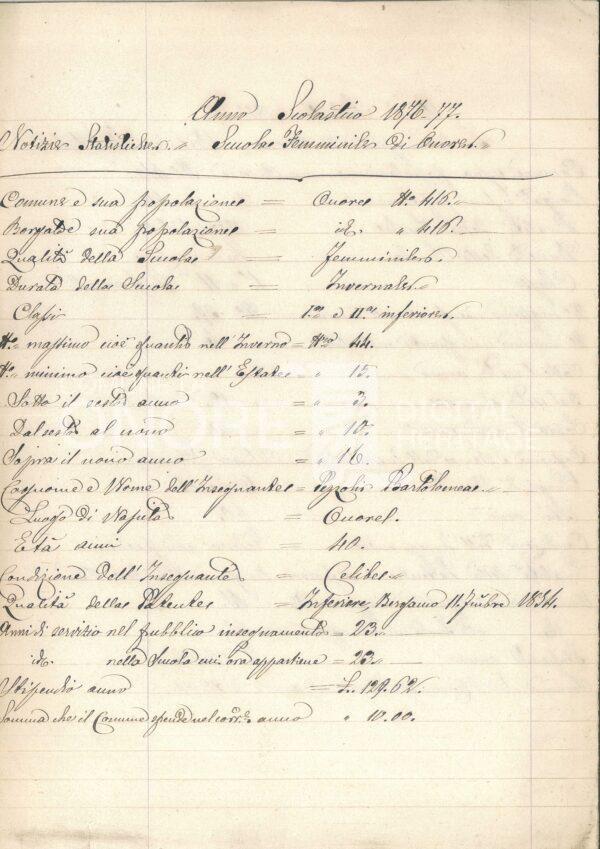 Anno Scolastico 1876-77.
Notizie Statistiche. „ Scuola Femminile di Cuore.
Comune e sua popolazione = Cuore N.o 416.
Borgate sua popolazione = id. „ 416.
Qualità della Scuola = Femminile.
Durata della Scuola = Invernale.
Classi = I.a e II.a inferiore.
N.o massimo cioè quanti nell'Inverno = N.o 44.
N.o minimo cioè quanti nell'Estate = „ 15.
Sotto il sesto anno = „ 3.
Dal sesto al nono = „
Sopra il nono anno = „ 16.
Cognome e Nome dell'Insegnante = Bartolomea.
Luogo di Nascita =
Età anni = 40.
Condizione dell'Insegnante = Celibe.
Qualità della Patente = Inferiore, Bergamo 11 1854.
Anni di servizio nel pubblico insegnamento = 23.
id. nella Scuola cui ora appartiene = 23.
Stipendio annuo = L. 129.62.
Somma che il Comune spende nel corr.e anno „ 10.00.